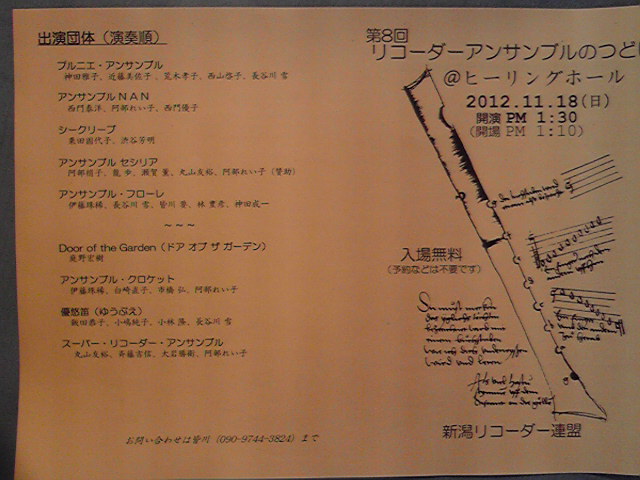 出演団体（演奏順）
ブルニエ・アンサンブル
神田雅子、近藤美佐子、荒木孝子、西山啓子、長谷川 雪
アンサンブルＮＡＮ
西門泰洋、阿部れい子、西門優子
シークリーブ
渋谷芳明
アンサンブル セシリア
丸山友裕、阿部れい子（賛助）
アンサンブル・フローレ
伊藤珠稀、長谷川 雪、皆川 林 神田成一
～～～
Door of the Garden（ドア オブ ザ ガーデン）
鹿野宏樹
アンサンブル・クロケット
伊藤珠稀、白崎直子、市橋 弘、阿部れい子
優悠笛（ゆうぶえ）
飯田恭子、小嶋純子、小林 隆、長谷川 雪
スーパー・リコーダー・アンサンブル
丸山友裕、斉藤吉信、大岩勝樹、阿部れい子
お問い合わせは皆川（090-9744-3824）まで
第8回
リコーダーアンサンブルのつどい
＠ヒーリングホール
2012.11.18(日)
開演 PM 1:30
(開場 PM 1:10)
入場無料
（予約などは不要です）
新潟リコーダー連盟